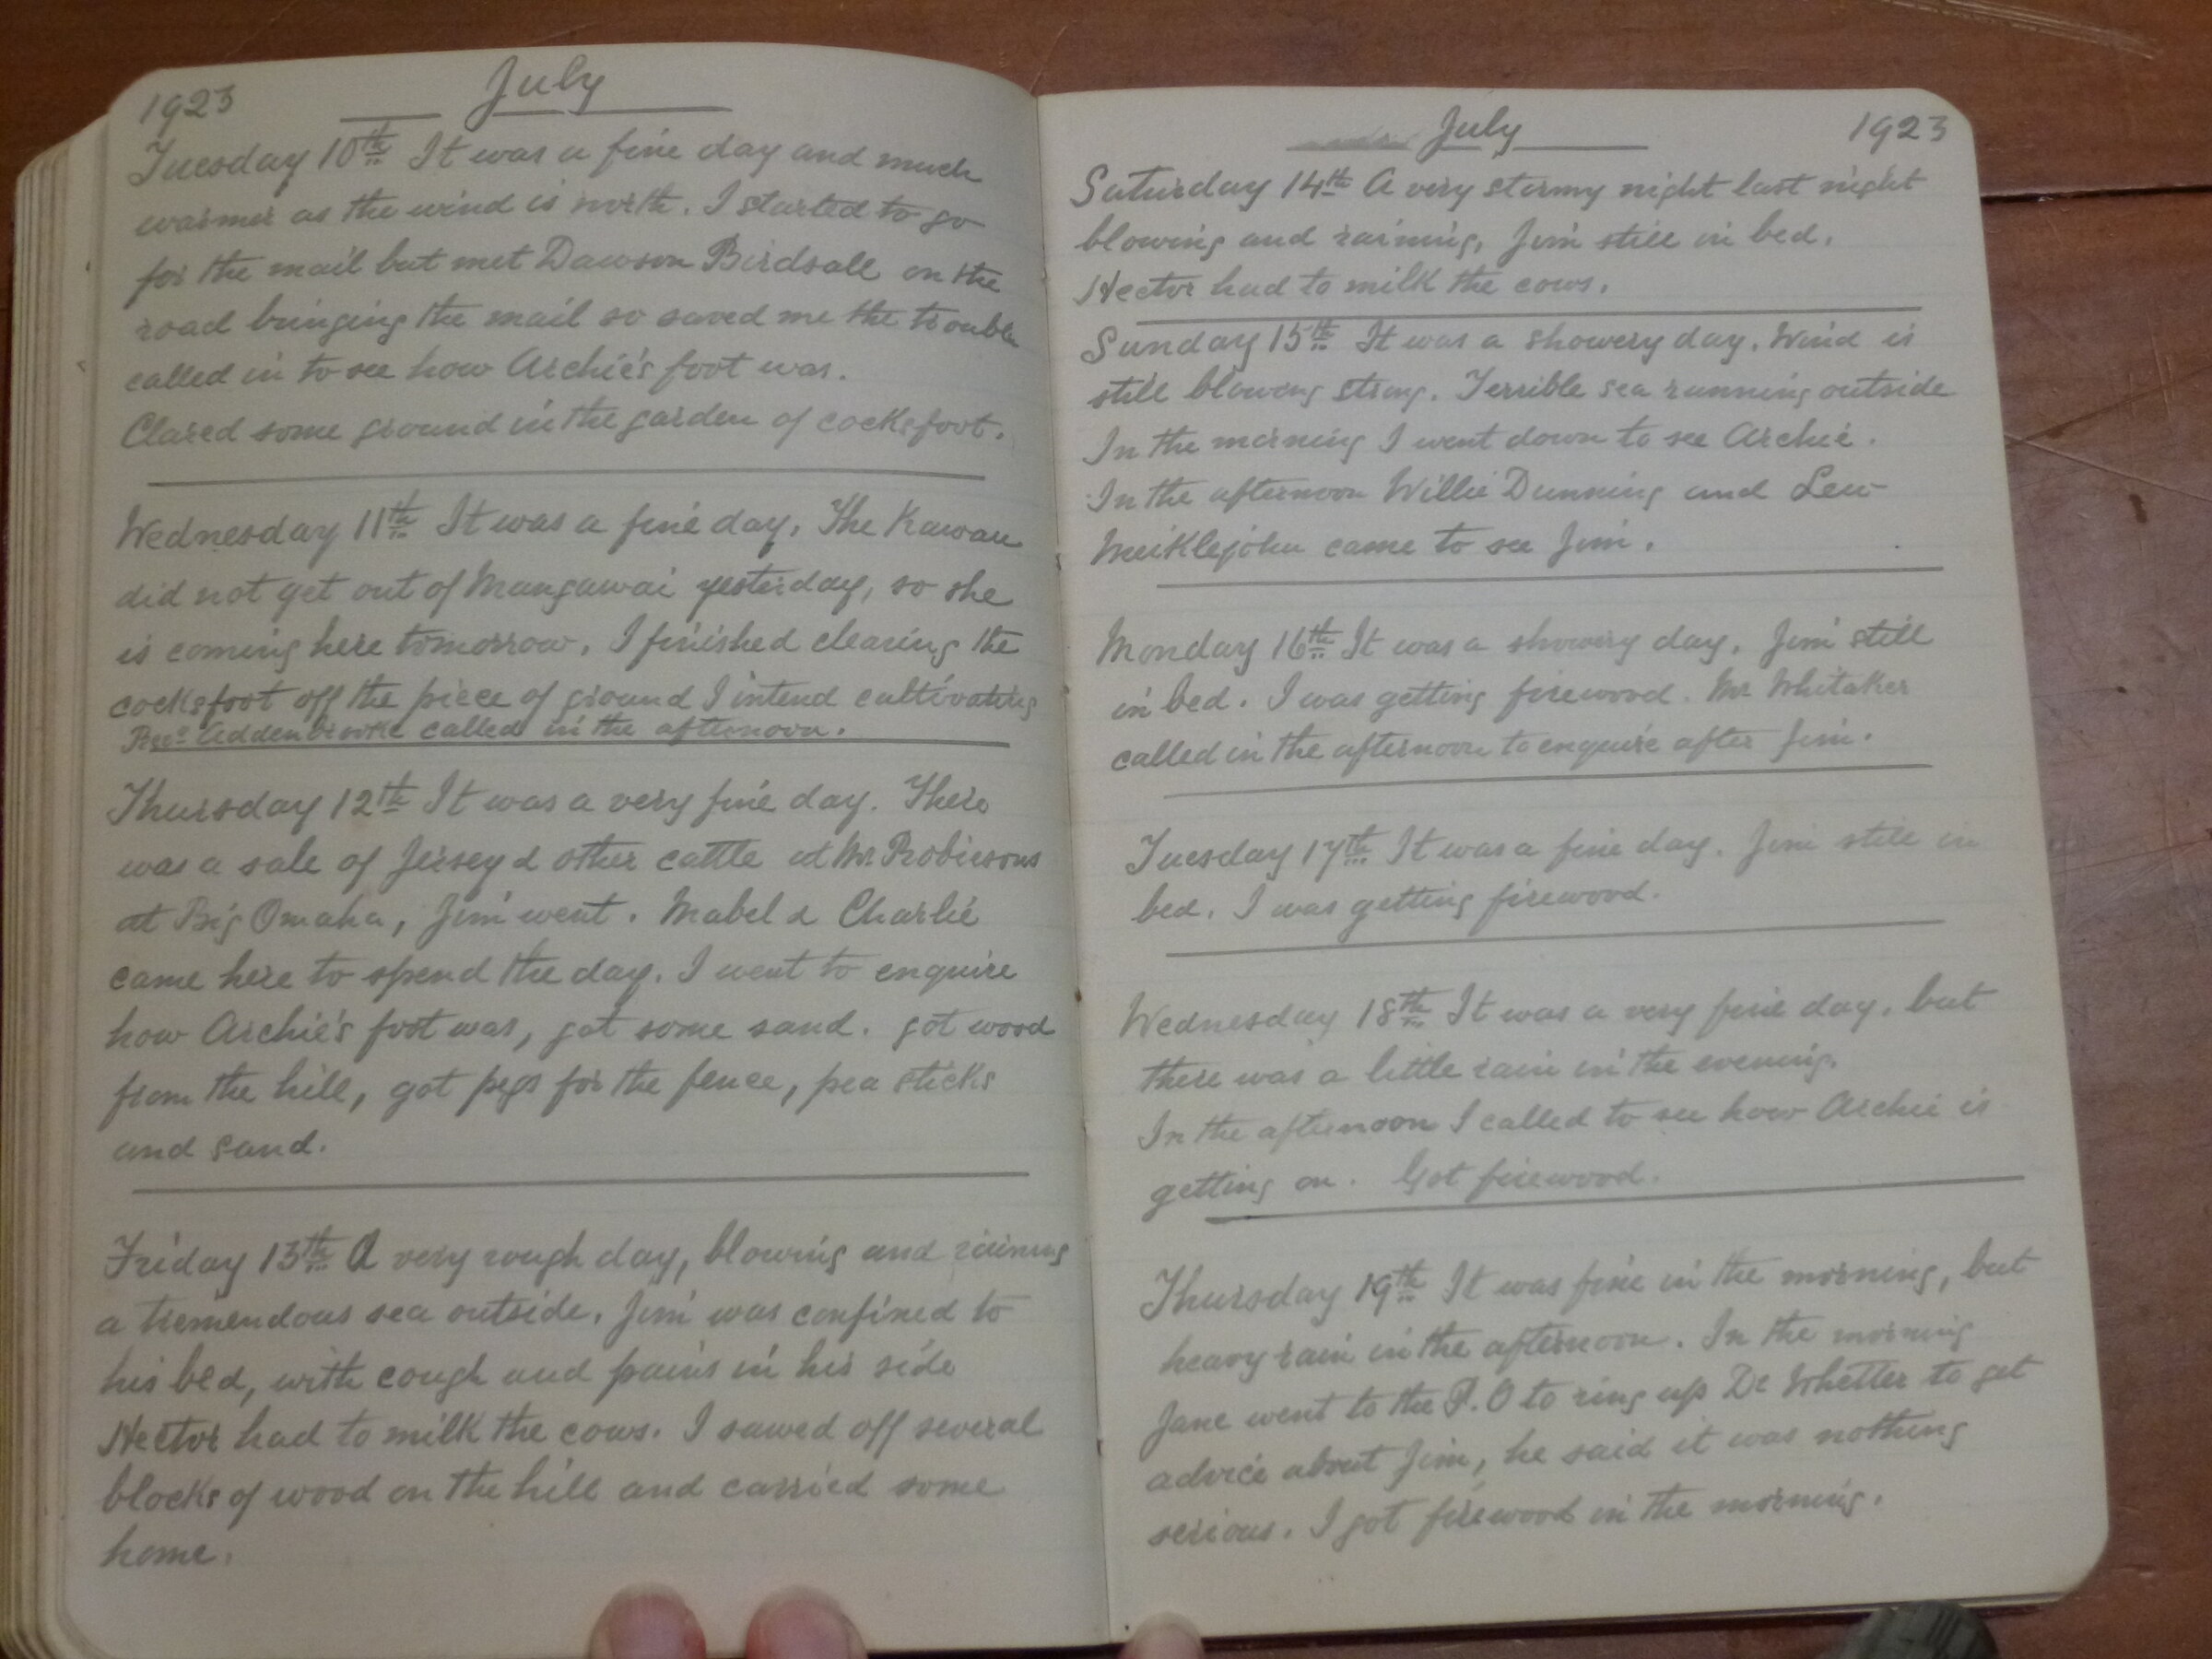 1923 July
Tuesday 10th It was a fine day and much
warmer as the wind is north. I started to go
for the mail but met Dawson Birdsall on the
road bringing the mail so saved me the trouble
called in to see how Archie's foot was.
Clared some ground in the garden of cocksfoot.
Wednesday 11th It was a fine day, The Kawau
did not get out of Mangawai yesterday, so she
is coming here tomorrow, I finished clearing the
cocksfoot off the piece of ground I intend cultivating
Addenbrooke called in the afternoon.
Thursday 12th It was a very fine day. There
was a sale of Jersey & other cattle at Mr Robinsons
at Big Omaha, Jim went. Mabel & Charlie
came here to spend the day. I went to enquire
how Archie's foot was, got some sand. got wood
from the hill, got pegs for the fence, pea sticks
and sand.
Friday 13th A very rough day, blowing and raining
a tremendous sea outside. Jim was confined to
his bed, with cough and pains in his side
Hector had to milk the cows. I sawed off several
blocks of wood on the hill and carried some
home.
July 1923
Saturday 14th A very stormy night last night
blowing and raining, Jim still in bed.
Hector had to milk the cows.
Sunday 15th It was a showery day. Wind is
still blowing strong. Terrible sea running outside
In the morning I went down to see Archie.
In the afternoon Willie Dunning and Lew
Meiklejohn came to see Jim.
Monday 16th It was a showery day. Jim still
in bed. I was getting firewood. Mr Whitaker
called in the afternoon to enquire after Jim.
Tuesday 17th It was a fine day. Jim still in
bed. I was getting firewood.
Wednesday 18th It was a very fine day, but
there was a little rain in the evening.
In the afternoon I called to see how Archie is
getting on. Got firewood.
Thursday 19th It was fine in the morning, but
heavy rain in the afternoon. In the morning
Jane went to the P.O to ring up Dr Whetter to get
advice about Jim, he said it was nothing
serious. I got firewood in the morning.